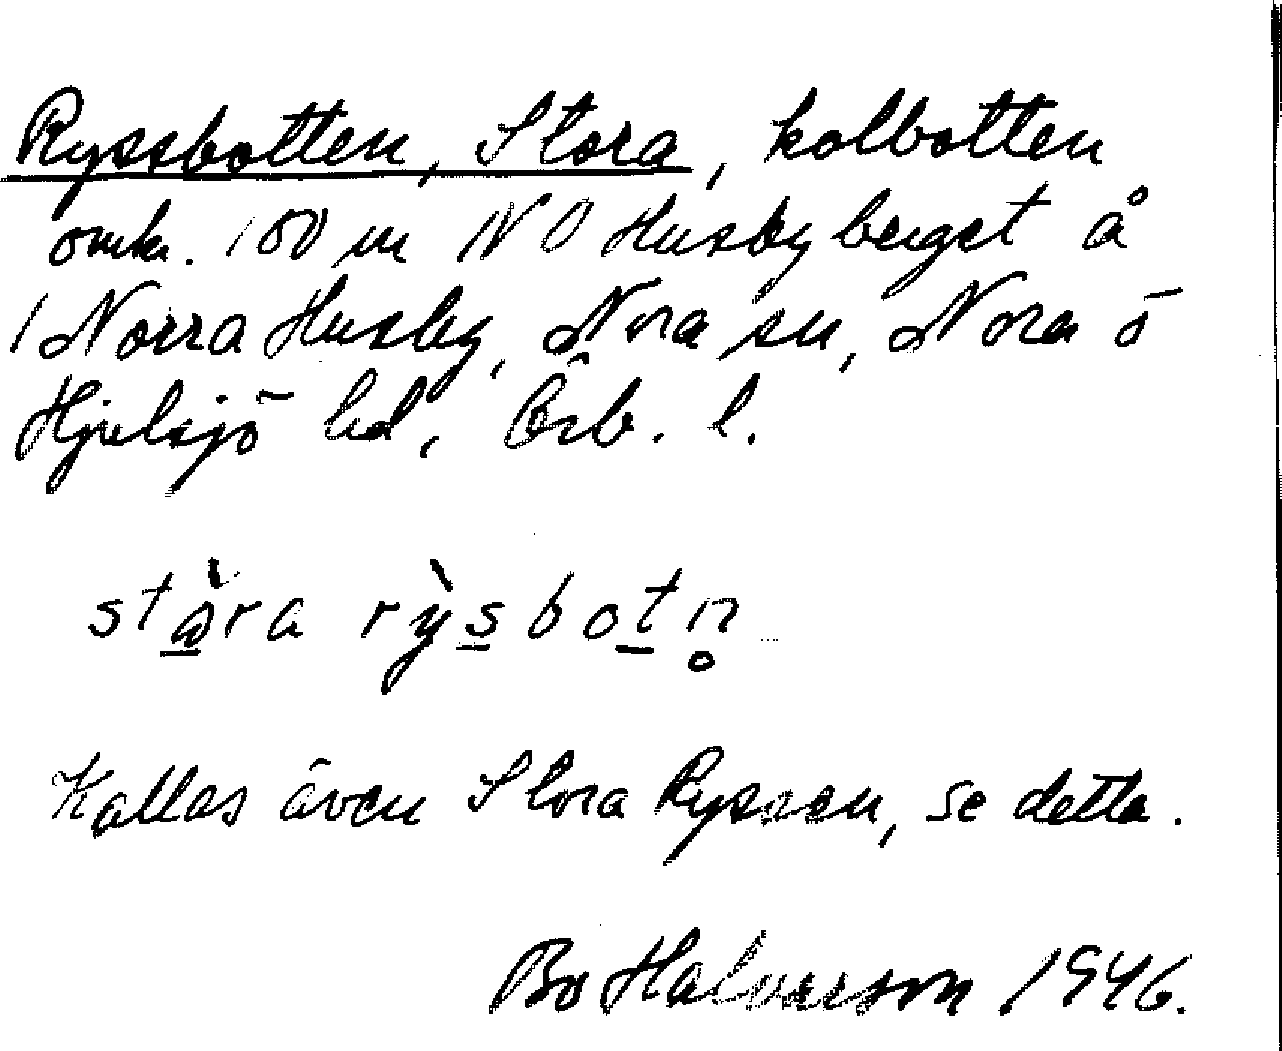 Ryssbotten, Stora, kolbotten
omkr. 150 m NO Husbyberget å
1 Norra Husby, Nora sn, Nora o
Hjulsjö bd, Örb. l.
stå̀ra rỳsbotn̥
Kallas även Stora Ryssen, se detta.
Bo Halvarson 1946.